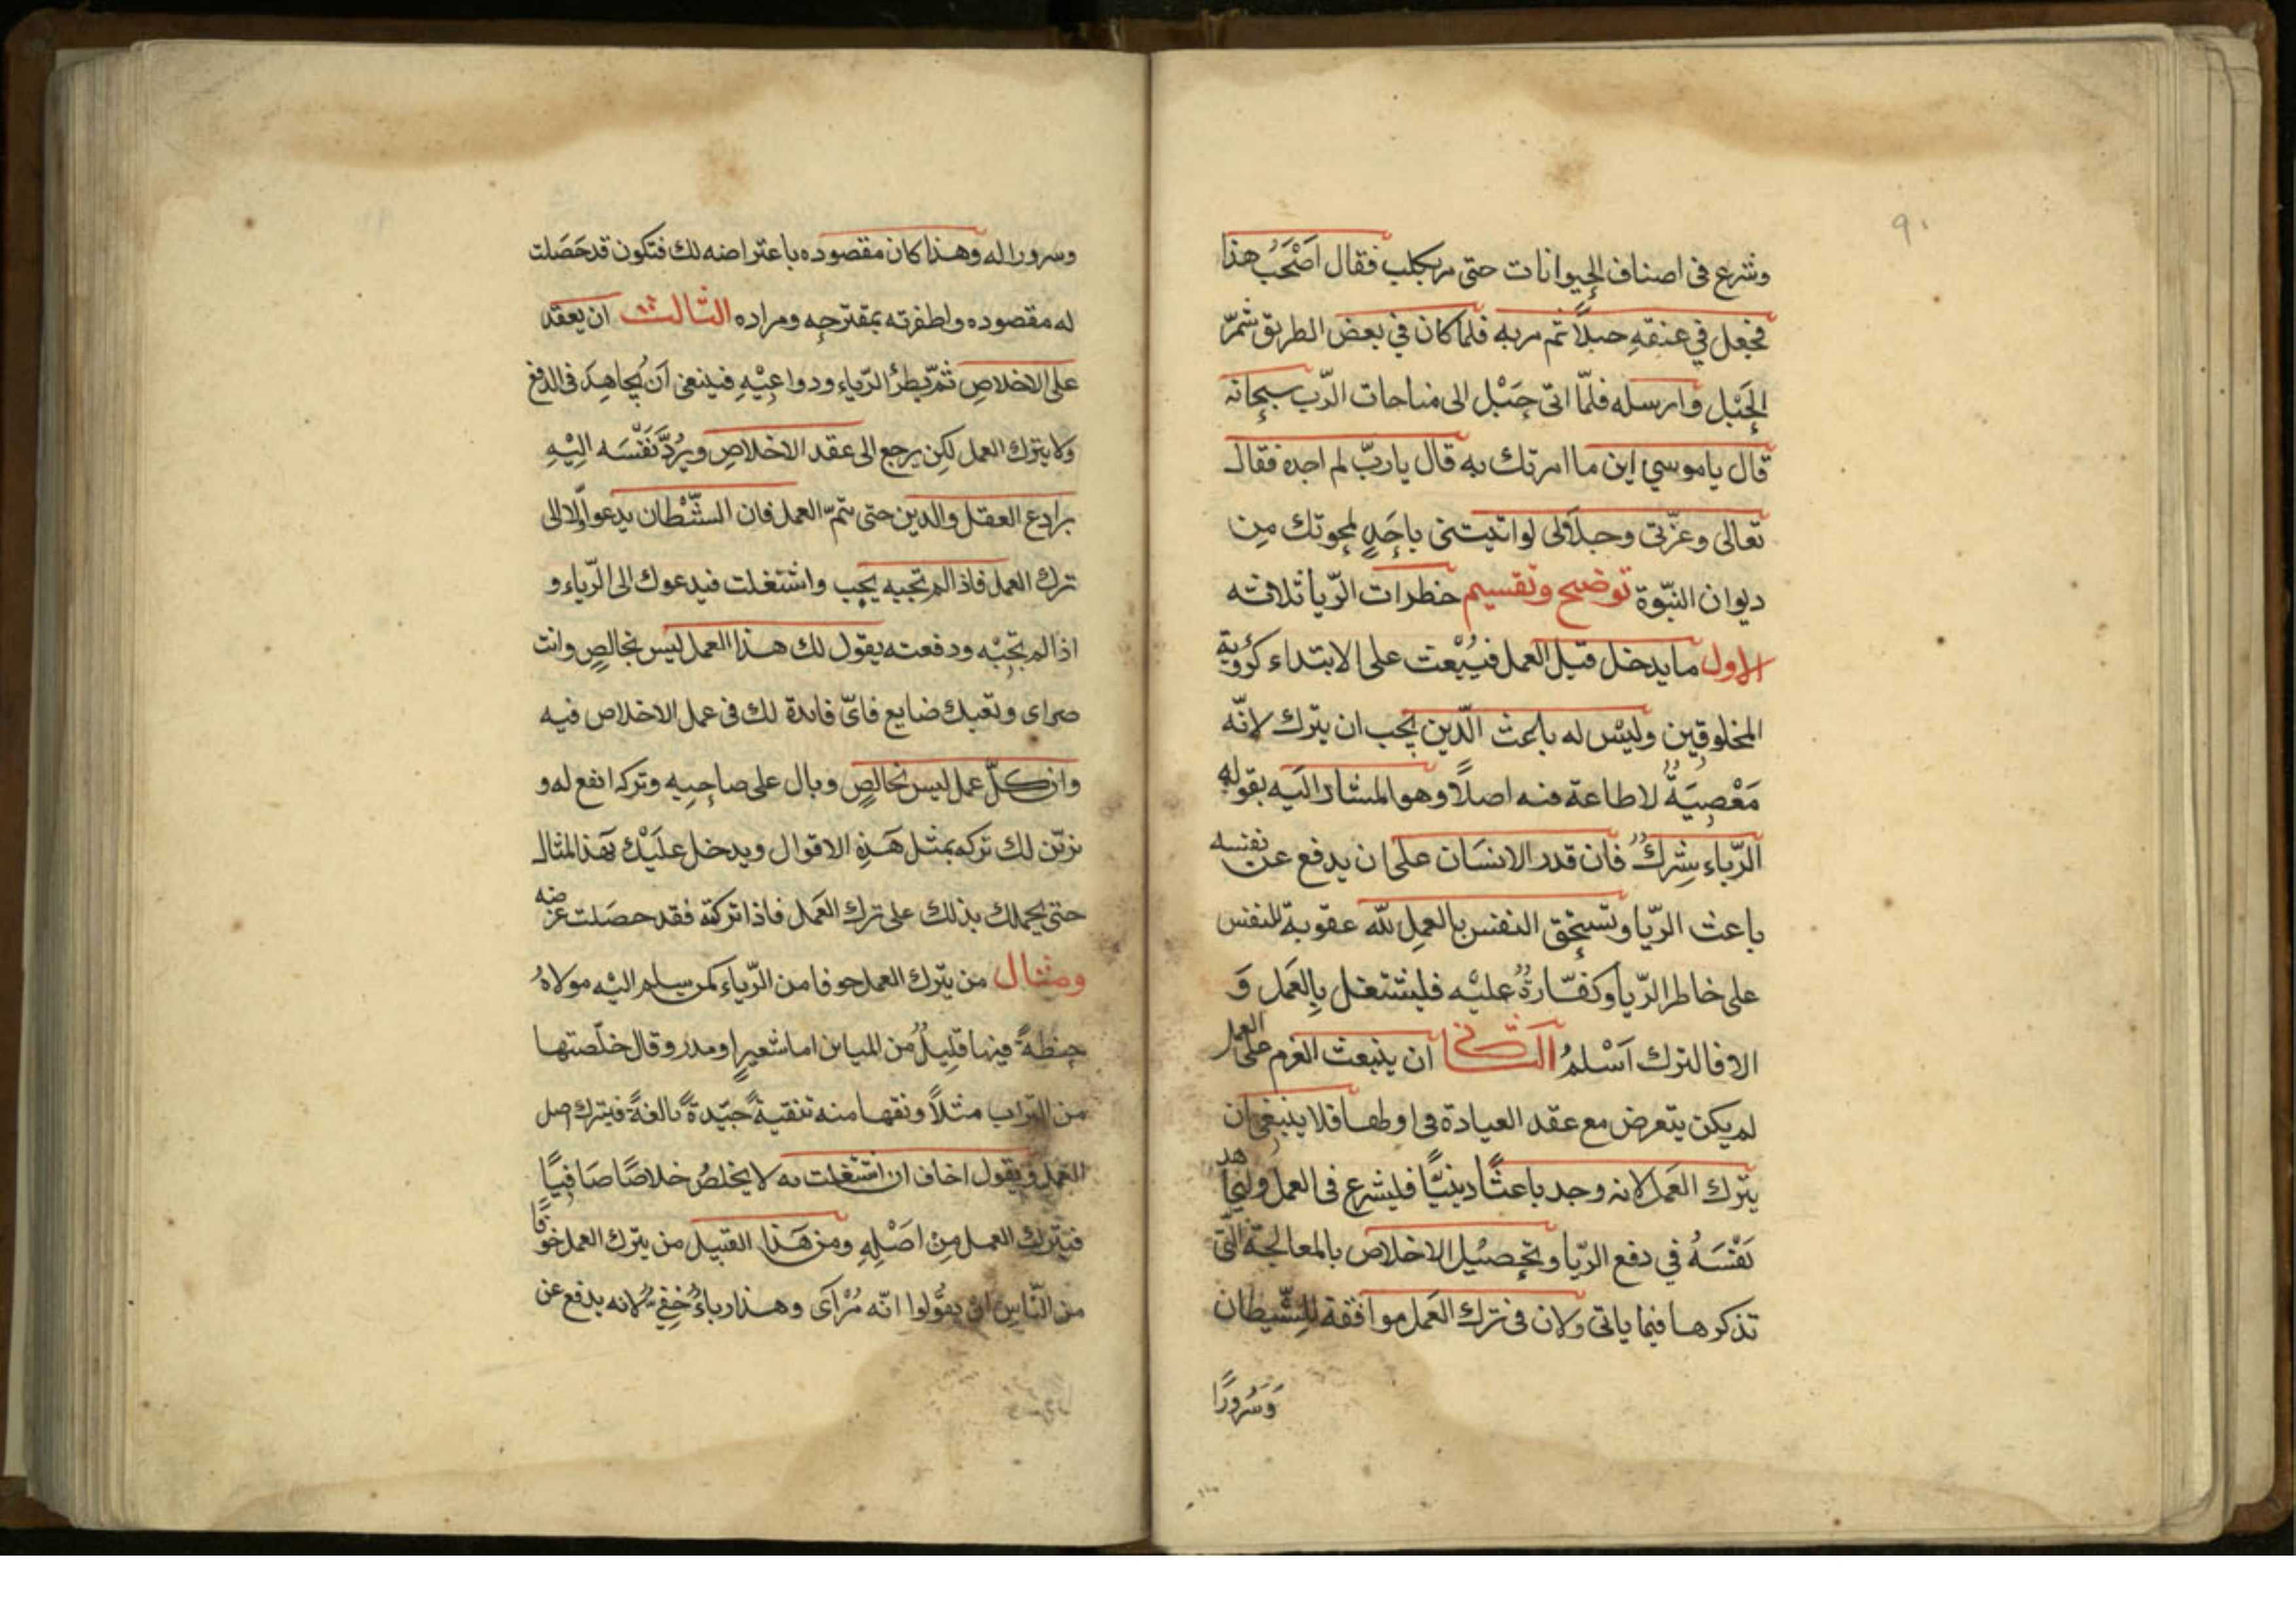 ٩٠
وشرع فى اصناف الحيوانات حتى مر بكلب فقال اَصْحَبُ هذا
فجعل في عنقهِ حبلاً ثم مر به فلما كان في بعض الطريق شمّر
الحَبْل وارسله فلمّا اتى حَبْل الى مناجات الرّب سبحانه
قال ياموسي اين ما امرتك به قال يا ربّ لم اجده فقال
تعالى وعزّتى وجلالى لو اتيتنى باحَدٍ لمحوتك مِن
ديوان النبّوة توضيح وتقسيم خطرات الرّيا ثلاثه
الاول ما يدخل قبل العمل فيُبْعث على الابتداء كرُؤية
المخلوقين وليْس له باعث الدّين يجب ان يترك لانّه
مَعْصِيَةٌ لا طاعة فيه اصلاً وهو المشار اليَه بقوله
الرّياء شِركٌ فان قدر الانسَان على ان يدفع عن نفسه
باعث الرّيا وتستحق النفس بالعمل لله عقوبة للنفس
على خاطر الرّيا وكفّارةٌ عليْه فليشتغل بِالعَمل وَ
الا فالترك اَسْلمُ الثانى ان ينبعث العزم على العمل
لم يكن يتعرض مع عقد العبادة فى اولها فلا ينبغى ان
يترك العَمل لانه وجد باعثًا دينيًّا فليشرع فى العمل وليجاهد
نَفْسَهُ في دفع الرّيا وتحصيْل الاخلاص بالمعالجة الّتى
تذكرها فيما ياتى ولان فى ترك العَمل موافقة للشّيطان
وَسُرورًا
وسرورا له وهذا كان مقصوده باعتراضه لك فتكون قد حَصَلت
له مقصوده واظفرته بمقترحِه ومراده الثالث ان يعقد
على الاخلاصِ ثمّ يطرأ الرّياء ودواعِيْهِ فينبغى اَن يُجاهِدَ فى الدفع
ولا يترك العمل لكِن يرجع الى عقد الاخلاصِ ويرُدَّ نَفْسَه اليْهِ
برادع العقل والدين حتى يتمّ العمل فان الشّيْطان يدعو اوّلا الى
ترك العمل فاذا لم تجبه يجب واشتغلت فيدعوك الى الرّياء و
اذا لم تجِبْه ودفعته يقول لك هذا العمل ليس بخالصٍ وانت
مراى وتعبك ضايع فاىّ فايدة لك فى عمل الاخلاص فيه
وان كلّ عمل ليس بخالصٍ وبال على صاحِبِه وتركه انفع له و
يزيّن لك تركه بمثل هَذِهِ الاقوال ويدخل عليْك بهَذا المثال
حتى يحملك بذلك على ترك العَمل فاذا تركته فقد حصَلت غرضه
ومثال من يترك العمل خوفا من الرّياء كمن سلم اليْه مولاهُ
حِنطةً فيها قلِيلٌ من المباين اما شعيرٍ او مدر وقال خلّصتها
من التراب مثلاً ونقها منه تنقيةً جيّدةً بالغةً فيترك اصل
العَمل ويقول اخاف ان اشتغلت به لا يخلصُ خلاصًا صَافِيًا
فيَترك العمل مِن اصْلِهِ ومن هَذا القبيل من يترك العمل خوفًا
من النّاسِ ان يقُولوا انّه مُرْآى وهذا رياءٌ خِفىٌ لانه يدفع عن